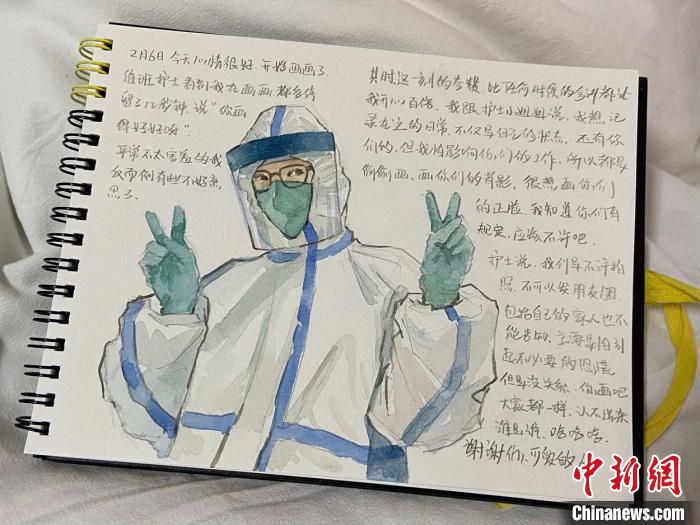 2月6日 今天心情很好.开始画画了.
值班护士看到我在画画,都会停
留了几秒钟.说“你画
得好好呀”
平常不太害羞的我
反而倒有些不好意
思了.
其时这一刻的夸赞.比任何时候的会讲都让
我开心百倍.我跟护士小姐姐说.我想,记
录在它的日常.不仅是自己的状态,还有你
们的.但我怕影响你们的工作.所以都是
偷偷画.画你们的背影.很想画你们
的正脸.我知道你们有
规定.应该不许吧.
护士说.我们是不许拍
照.不可以发朋友圈.
包括自己的家人也不
能告知.主要是怕引
起不必要的恐慌
但是没关系.你画吧
大家都一样.认不出来
谁是谁.哈哈哈.
谢谢们.可爱的
中新网
Chinanews.com